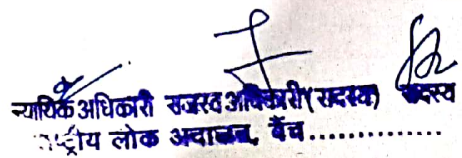 न्यायिक अधिकारी राजस्व अधिकारी (सदस्य) सदस्य
राष्ट्रीय लोक अदालत, बैंच...............